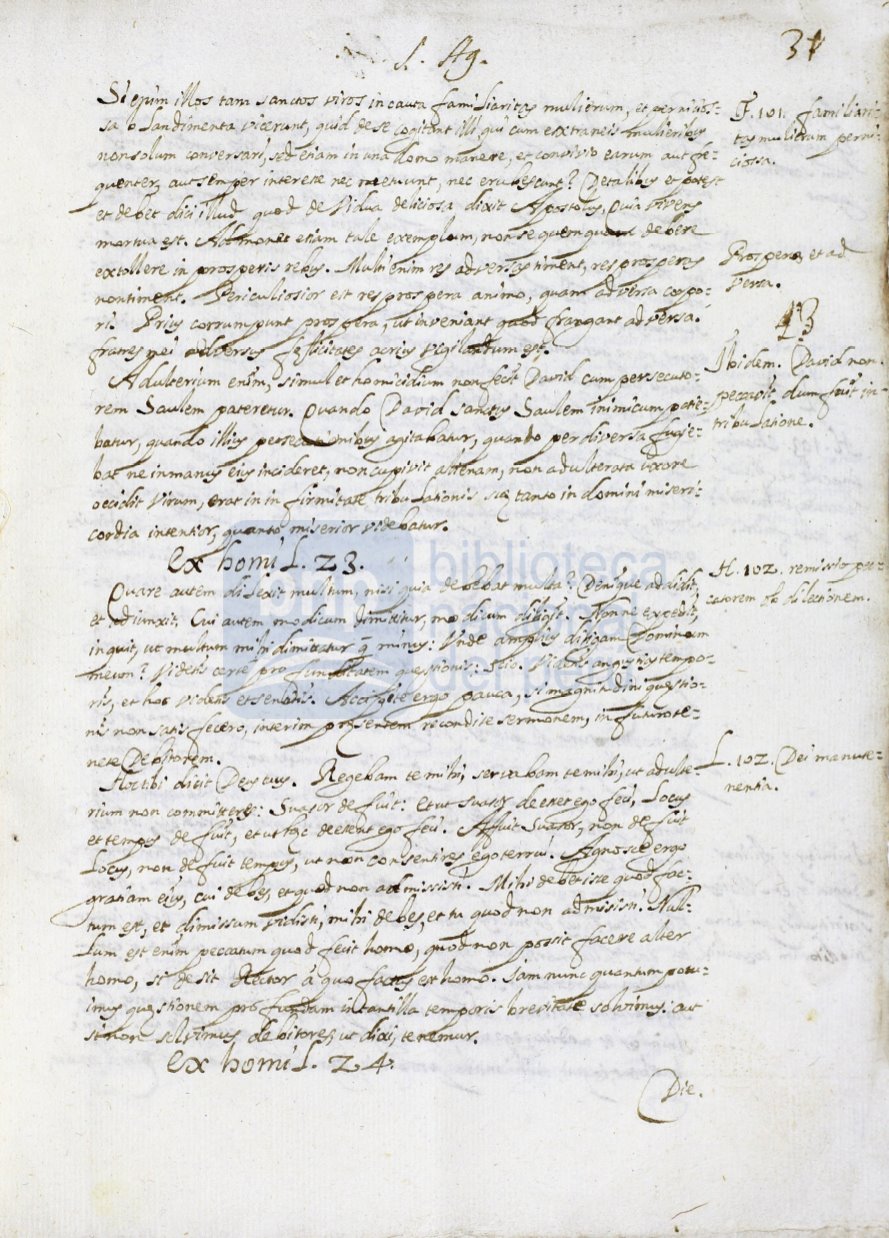 S. Ag.
31
Si enim illos tam sanctos viros incauta familiaritas mulierum, et pernicio-
sa blandimenta vicerunt, quid de se cogitent illi, qui cum extraneis mulieribus
non solum conversari, sed etiam in una domo manere, et convivio earum aut fre-
quenter, aut semper interesse nec metuunt, nec erubescunt? De talibus et potest
et debet dici illud quod de vidua deliciosa dixit Apostolus, quia vivens
mortua est. Admonet etiam tale exemplum, non se quemquam debere
extollere in prosperis rebus. Multi enim res adversas timent, res prosperas
non timent. Periculiosior est res prospera animo, quam adversa corpo-
ri. Prius corrumpunt prospera, ut inveniant quod frangant adversa.
fratres mei adversus felicitates acrius vigilandum est.
Adulterium enim, simul et homicidium non fecit David cum persecuto-
rem Saulem pateretur. Quando David sanctus Saulem inimicum patie-
batur, quando illius persecutionibus agitabatur, quando per diversa fugie-
bat ne in manus eius incideret, non cupivit alienam, non adulterata uxore
occidit virum, erat in infirmitate tribulationis suae tanto in domini miseri-
cordia intentior, quanto miserior videbatur.
ex homil. 23.
Quare autem dilexit multum, nisi quia debebat multa? Denique addidit,
et adiunxit, Cui autem modicum dimittitur, modicum diligit. Nonne expedit,
inquit, ut multum mihi dimittatur q̄ minus: Unde amplius diligam Dominum
meum? Videtis certe profunditatem quaestionis: scio. Videtis angustias tempo-
ris, et hoc videtis et sentitis. Accipite ergo pauca, si magnitudini quaestio-
nis non satisfecero, interim praesentem recondite sermonem, in futuro te-
nete Debitorem.
Hoc tibi dicit Deus tuus. Regebam te mihi, servabam te mihi, ut adulte-
rium non committeres: Suasor defuit: et ut suasor deesset ego feci, Locus
et tempus defuit, et ut haec deessent ego feci. Affuit suasor, non defuit
Locus, non defuit tempus, ut non consentires ego terrui. Agnosce ergo
gratiam eius, cui debes, et quod non admisisti. Mihi debet iste quod fac-
tum est, et dimissum vidisti, mihi debes, et tu quod non admisisti. Nul-
lum est enim peccatum quod fecit homo, quod non possit facere alter
homo, si desit Rector à quo factus est homo. Iam nunc quantum potu-
imus quaestionem profundam in tantilla temporis brevitate solvimus: aut
si non solvimus debitores, ut dixi, tenemur.
ex homil. 24.
Die.
F. 101. familiari-
tas mulierum perni-
ciosa.
Prospera, et ad
versa.
Ibidem. David non
peccavit, dum fuit in
tribulatione.
H. 102. remissio pec-
catorem ob dilectionem.
L. 102. Dei manute-
nentia.
bnp
biblioteca
nacional
del perú